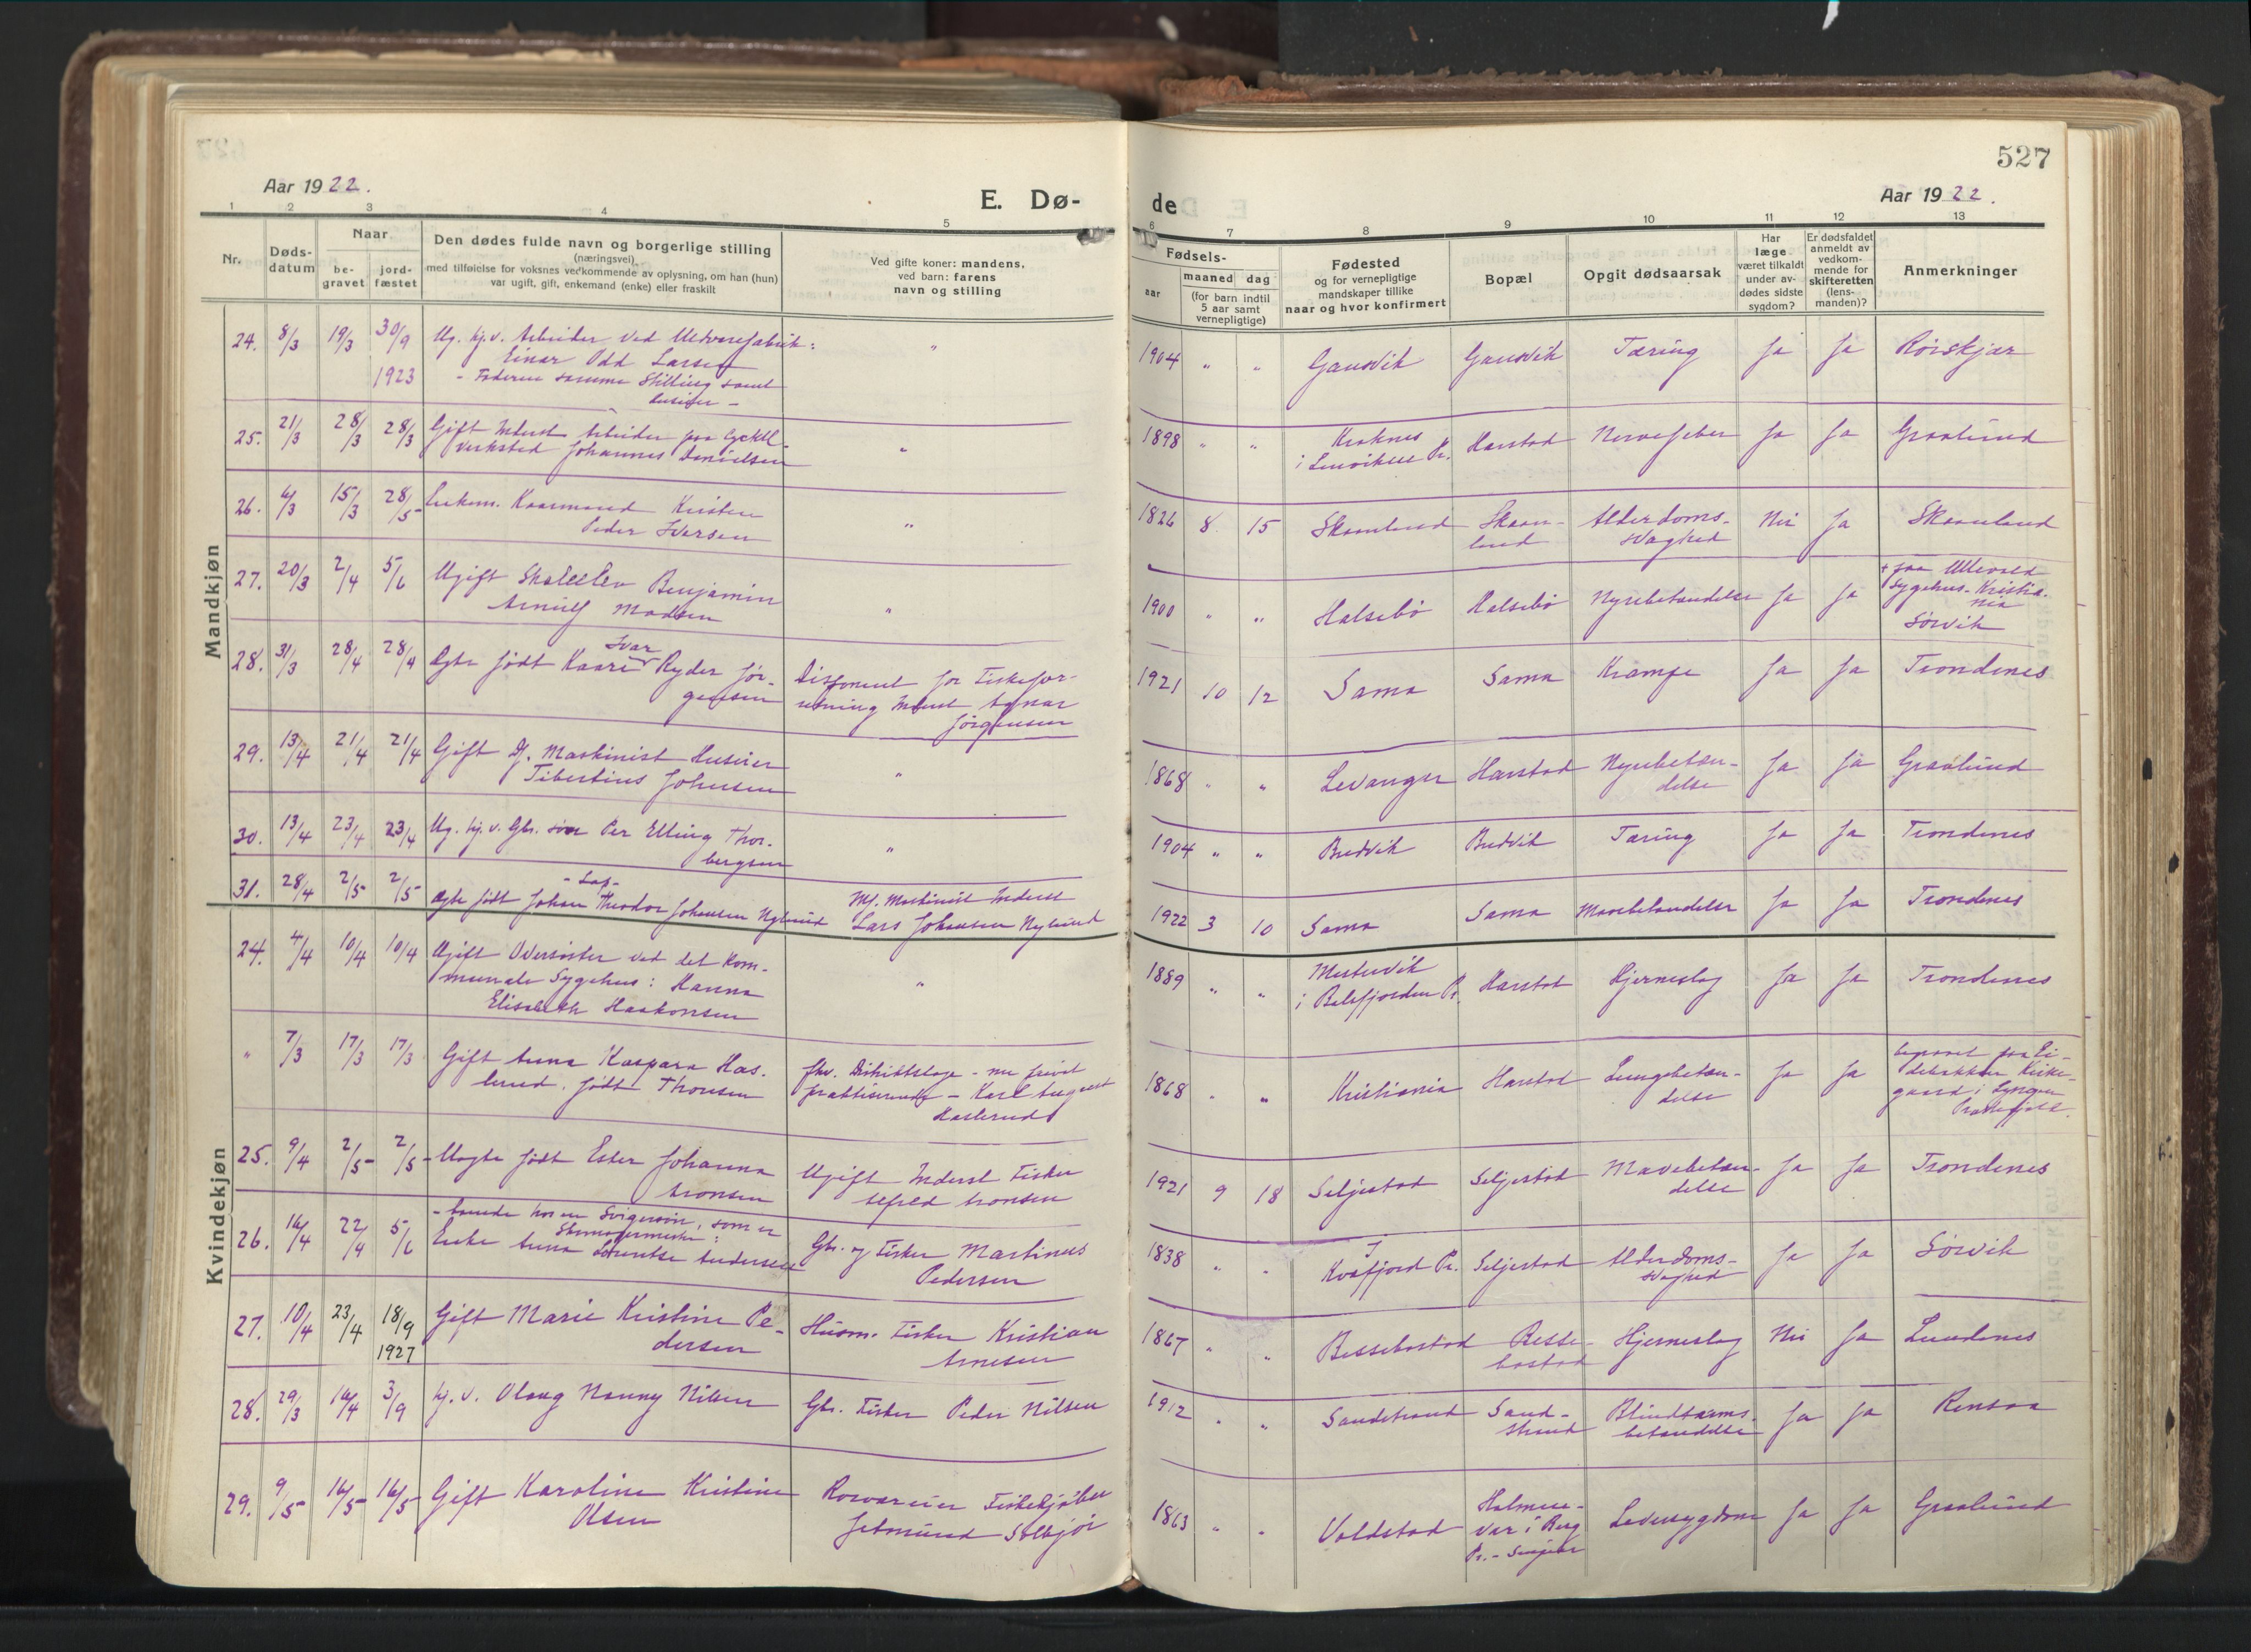 527
Aar 1922.
E. Dø-
de
Aar 1922.
1 2 3 4 5 6 7 8 9 10 11 12 13
Nr.
Døds-
datum
Naar
be-
gravet
jord-
fæstet
Den dødes fulde navn og borgerlige stilling
(næringsvei)
med tilføielse for voksnes vedkommende av oplysning, om han (hun)
var ugift, gift, enkemand (enke) eller fraskilt
Ved gifte koner: mandens,
ved barn: farens
navn og stilling
Fødsels-
aar
maaned dag
(for barn indtil
5 aar samt
vernepligtige)
Fødested
og for vernepligtige
mandskaper tillike
naar og hvor konfirmert
Bopæl
Opgit dødsaarsak
Har
læge
været tilkaldt
under av-
dødes sidste
sygdom?
Er dødsfaldet
anmeldt av
vedkom-
mende for
skifteretten
(lens-
manden)?
Anmerkninger
Mandkjøn
24. 8/3 19/3 30/9 1923
Ug. hj.v. Arbeider ved Uldvarefabrik:
Einar Odd Larsen
- Faderen samme Stilling samt
Huseier -
" 1904 " " Gausvik Gausvik Tæring Ja Ja Röiskjær
25. 21/3 28/3 28/3
Gift Inderst Arbeider paa Cykkel-
verksted Johannes Danielsen
" 1898 " " Kraknes
i Lenvikens Pr. Harstad Nervefeber Ja Ja Graalund
26. 4/3 15/3 28/5
Enkem. Kaarmand Kristen
Peder Iversen
" 1826 8 15 Skaanland Skaan-
land Alderdoms-
svaghed Nei Ja Skaanland
27. 20/3 2/4 5/6
Ugift Skoleelev Benjamin
Arnulf Madsen
" 1900 " " Halsebö Halsebö Nyrebetændelse Ja Ja + paa Ullevold
Sygehus - Kristia-
nia
Sörvik
28. 31/3 28/4 28/4
Ivar
Ægte födt Kaare Ryder Jör-
gensen
Disponent for Fiskefor-
retning Inderst Agnar
Jörgensen
1921 10 12 Sama Sama Krampe Ja Ja Trondenes
29. 13/4 21/4 21/4
Gift Df. Maskinist Huseier
Tibertius Johnsen
" 1868 " " Levanger Harstad Nyrebetæn-
delse Ja Ja Graalund
30. 13/4 23/4 23/4
Ug. hj.v. Gbr. sön Per Elling Thor-
bergsen
" 1904 " " Budvik Budvik Tæring Ja Ja Trondenes
31. 28/4 2/5 2/5
Ægte födt Johan Theodor Johansen Nylund
Mf. Maskinist Inderst
Lars Johansen Nylund
1922 3 10 Sama Sama Mavebetændelse Ja Ja Trondenes
Kvindekjøn
24. 4/4 10/4 10/4
Ugift Oversöster ved det Kom-
munale Sygehus: Hanna
Elisabeth Haakonsen
" 1889 " " Mestervik
i Balsfjorden Pr. Harstad Hjerneslag Ja Ja Trondenes
" 7/3 17/3 17/3
Gift Anna Kaspara Has-
lund, födt Thorsen
fhv. Distriktslæge - nu privat
praktiserende - Karl August
Haslund
1868 " " Kristiania Harstad Lungebetæn-
delse Ja Ja begravet paa
Kirke-
gaard i Lyngen
25. 9/4 2/5 2/5
Uægte födt Ester Johanna
Aronsen
Ugift Inderst Fisker
Alfred Aronsen
1921 9 18 Seljestad Seljestad Mavebetæn-
delse Ja Ja Trondenes
26. 14/4 22/4 5/6
- boende hos en Svigersön, som er
Skomagermester:
Enke Anna Lorentse Andersen
Gbr. og Fisker Martinus
Pedersen
1838 " " I
Kvæfjord Pr. Seljestad Alderdoms-
svaghed Ja Ja Sörvik
27. 10/4 23/4 18/9 1927
Gift Marie Kristine Pe-
dersen
Husm. Fisker Kristian
Arnesen
1867 " " Bessebostad Besse-
bostad Hjerneslag Nei Ja Lundenes
28. 29/3 14/4 3/9
hj. v. Olaug Nanny Nilsen
Gbr. Fisker Peder Nilsen
1912 " " Sandstrand Sand-
strand Blindtarms-
betændelse Ja Ja Rensaa
29. 9/5 16/5 16/5
Gift Karoline Kristine
Olsen
Fiskekjöber
1863 " " Voldstad Holmen-
vær i Berg
Pr. - Senjen Leversygdom Ja Ja Graalund